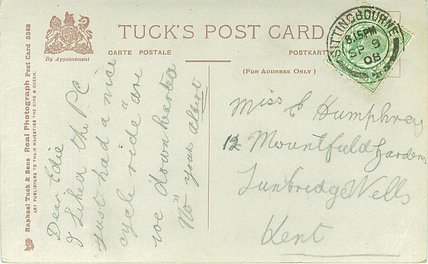 TUCK'S POST CARD
CARTE POSTALE
POSTKARTE
(FOR ADDRESS ONLY)
By Appointment
Raphael Tuck & Sons Real Photograph Post Card 5368
ART PUBLISHERS TO THEIR MAJESTIES THE KING & QUEEN.
SITTINGBOURNE
8.15PM
SP 9
08
Dear Edie
I liked the PC
just had a nice
cycle ride are
we downhearted
"No" yours Albert
Miss E Humphrey
12 Mountfield Gardens
Tunbridge Wells
Kent